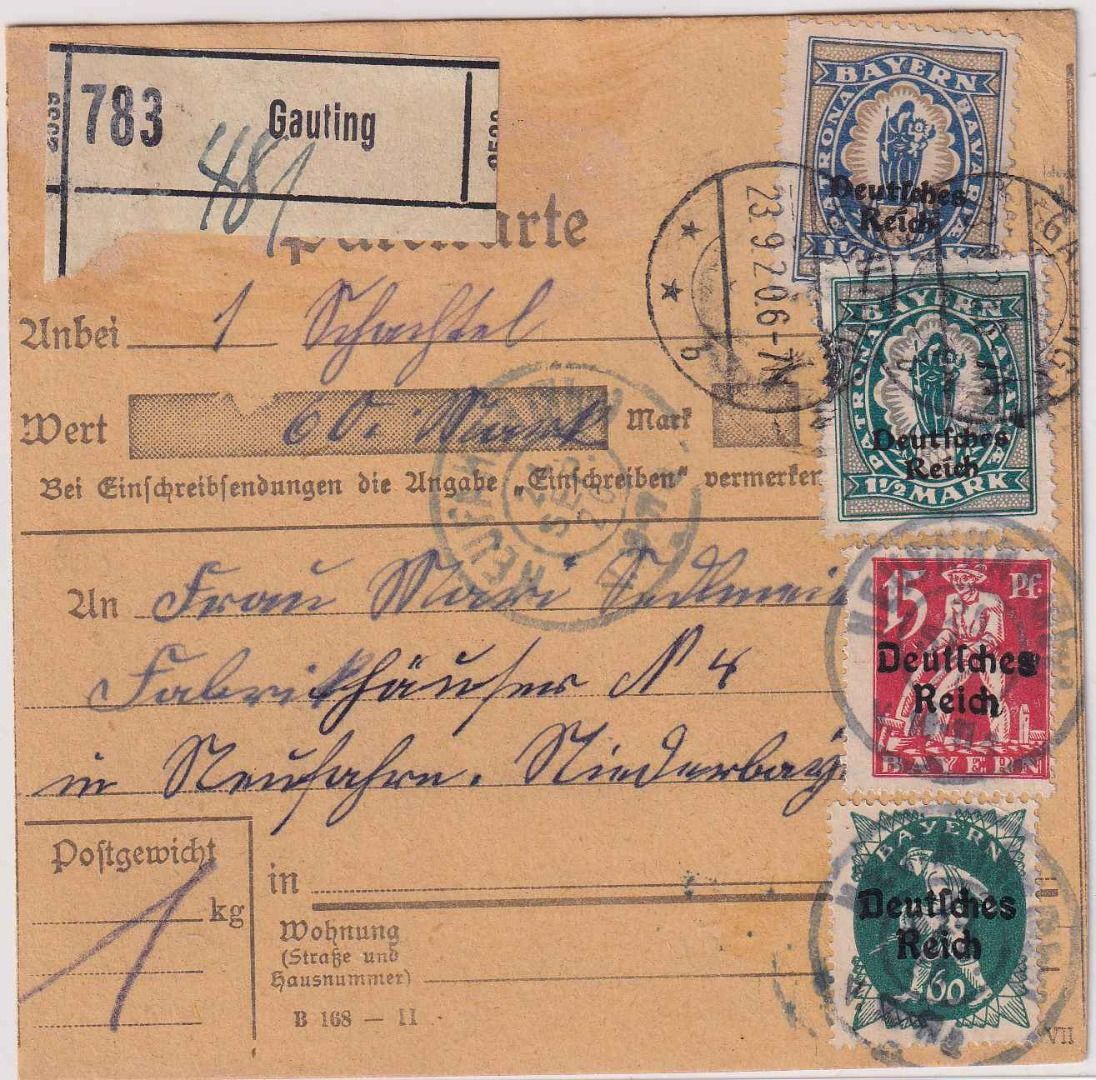 783 Gauting
481
Paketkarte
Anbei 1 Schachtel
Wert 60. Mark Mark
Bei Einschreibsendungen die Angabe „Einschreiben“ vermerken
An Frau Mari
Fabrikhäuser N 4
in Neufahrn. Niederbay
Postgewicht
1 kg
in
Wohnung
(Straße und
Hausnummer)
B 168 — II
VII
BAYERN
PATRONA BAVARIAE
Deutsches
Reich
BAYERN
PATRONA BAVARIAE
Deutsches
Reich
1½ MARK
15 Pf.
Deutsches
Reich
BAYERN
BAYERN
Deutsches
Reich
60
GAUTING
23.9.20.6-7N
b
NEUFAHRN
SEP.
20